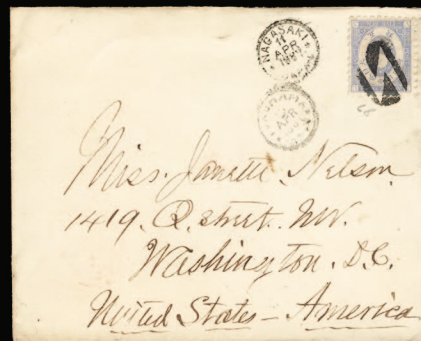 NAGASAKI
11
APR
APR
Miss. Janette Nelson.
1419. Q. street. NW.
Washington. D.C.
United States - America